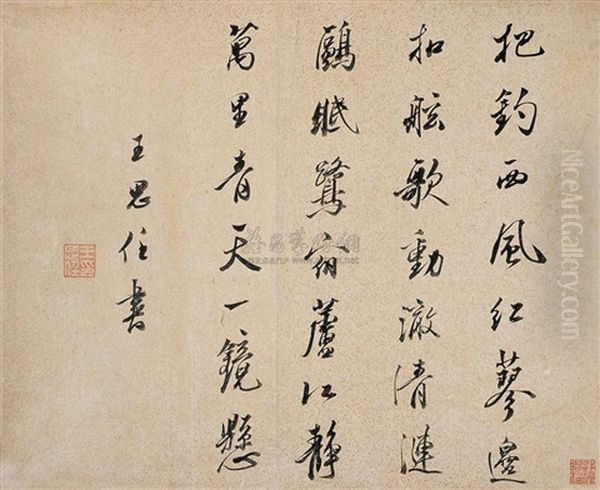 把釣西風紅蓼邊
扣舷歌動激清漣
鷗眠鷺宿蘆江靜
萬里青天一鏡懸
王思任書
NiceArtGallery.com